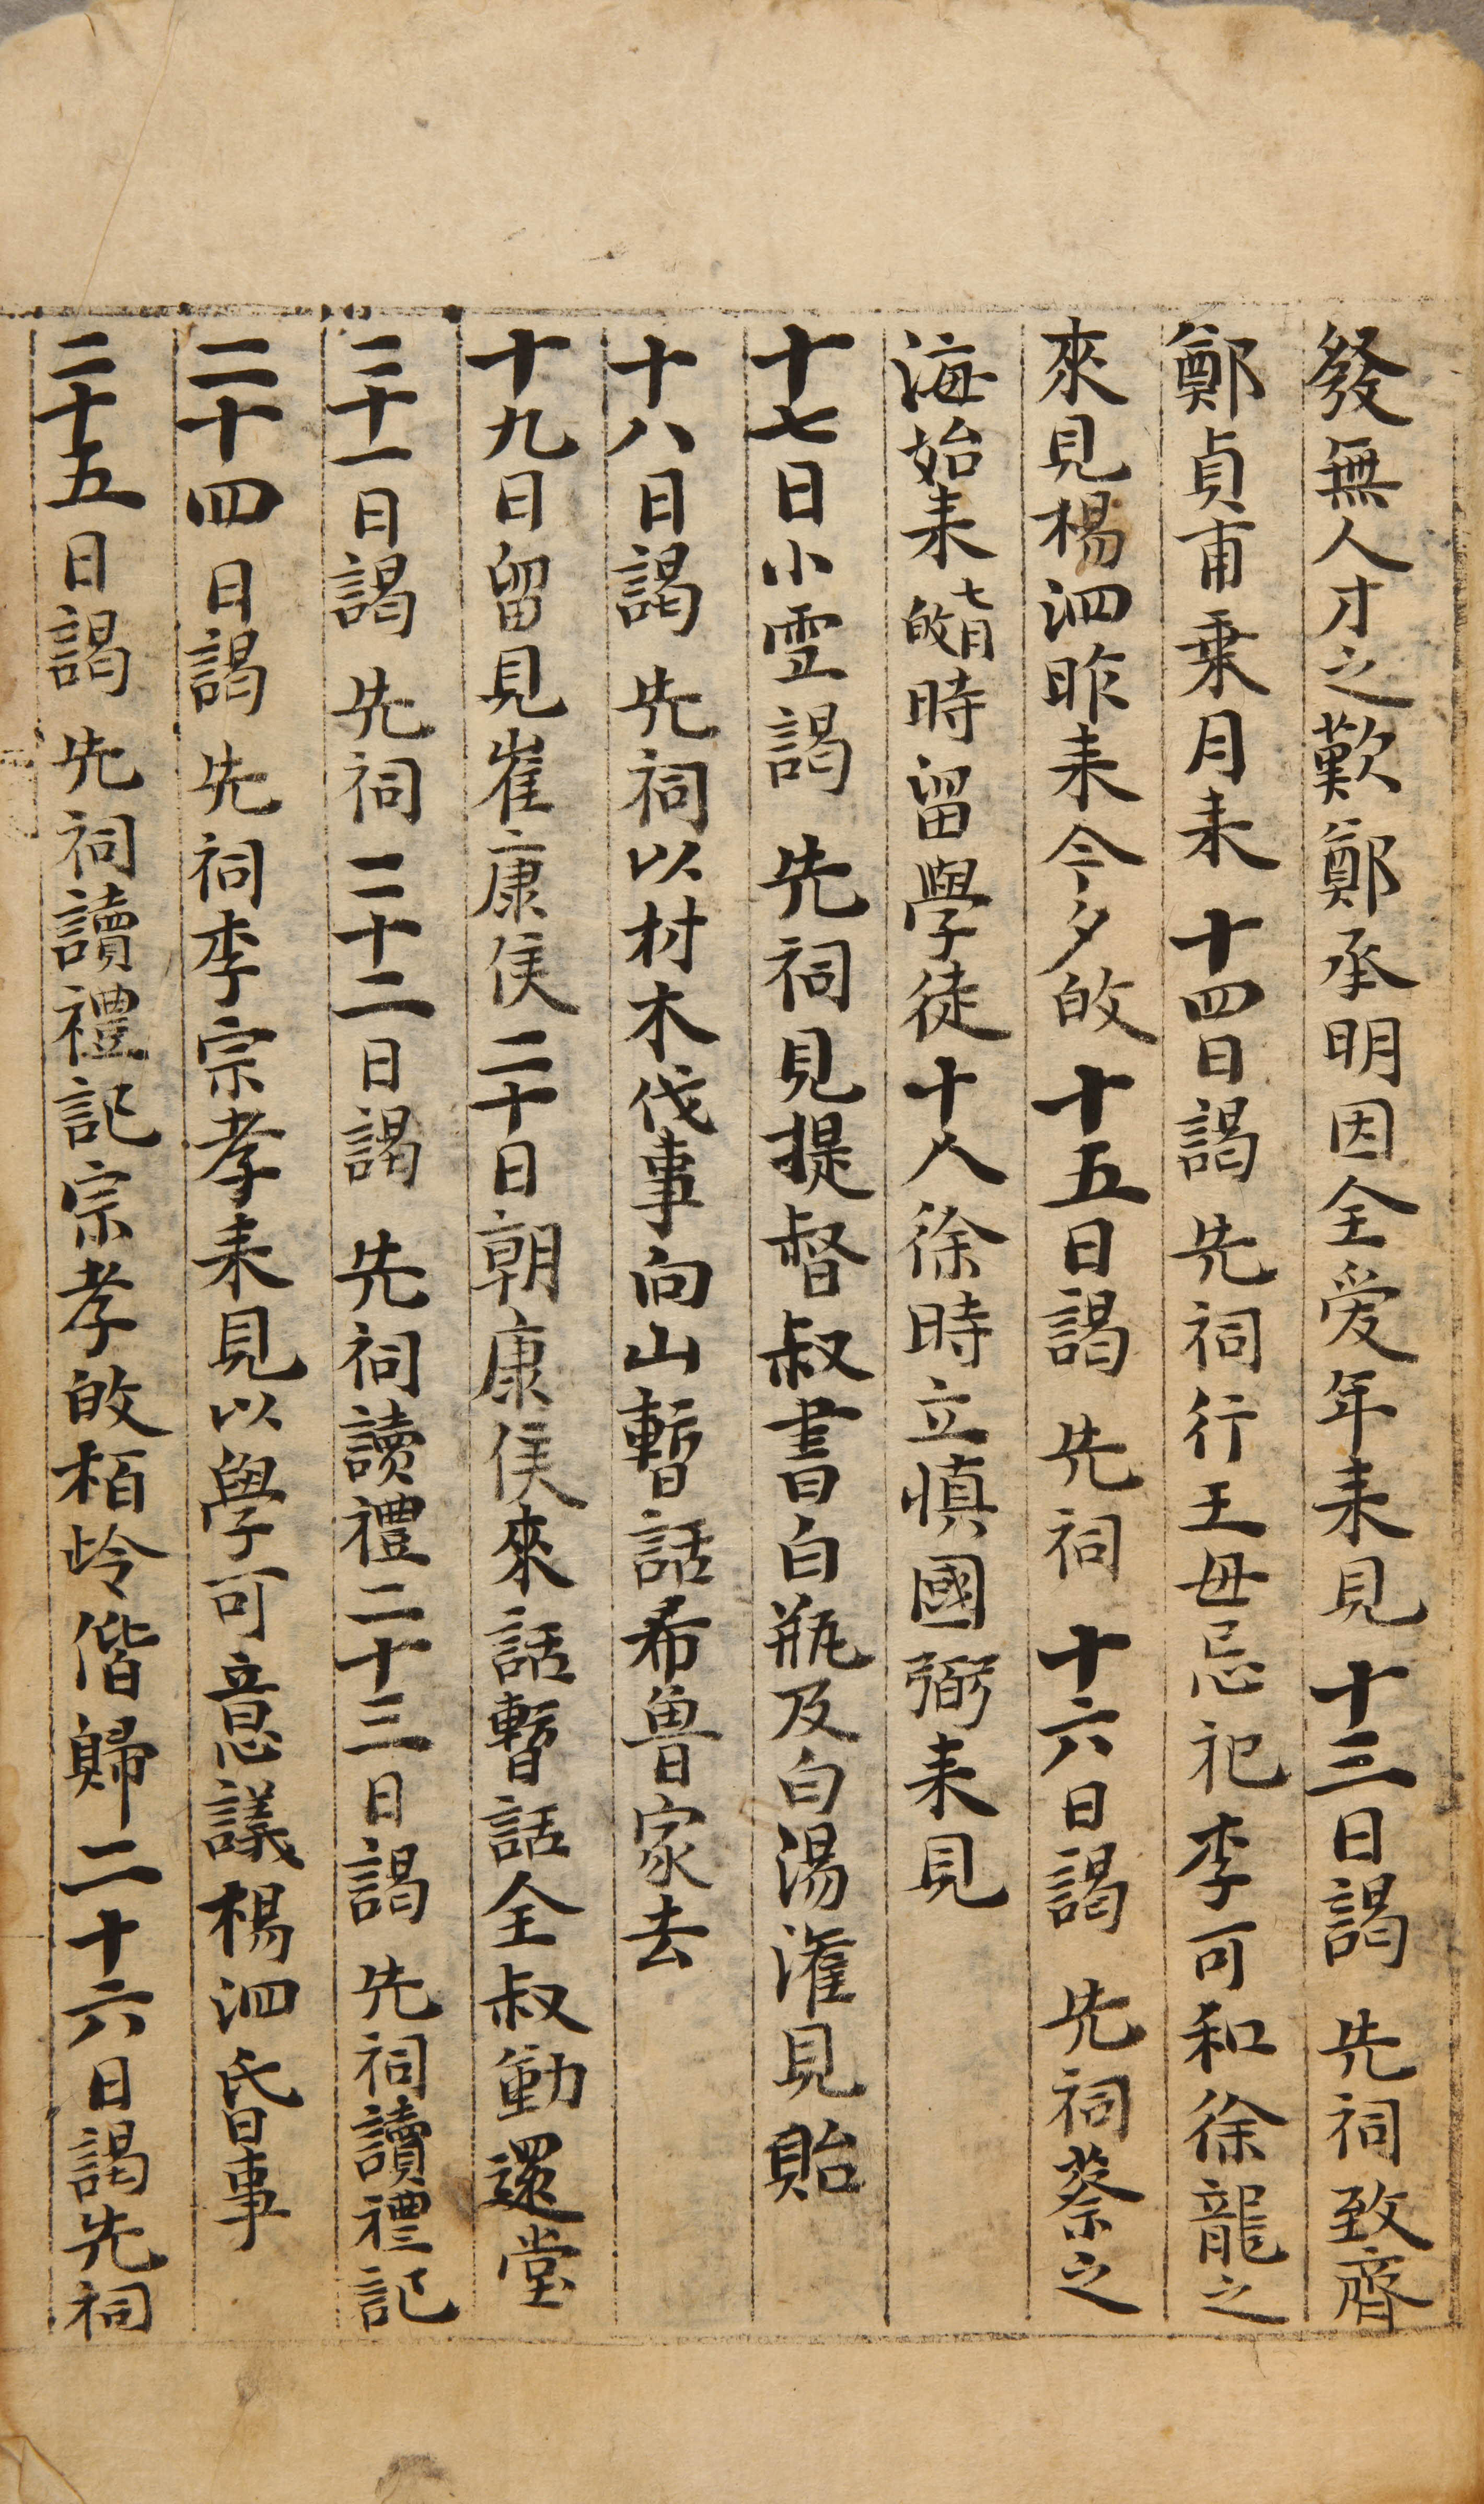 發無人才之歎鄭承明因全爱年耒見十三日謁 先祠致齊
鄭貞甫乗月耒 十四日謁 先祠行王毋忌祀李可和徐龍之
來見楊泗昨耒今夕㱕 十五日謁 先祠 十六日謁 先祠蔡之
海始耒七月㱕時留學徒十人徐時立愼國弼耒見
十七日小雪謁 先祠見提督叔書白瓶及白湯潅見貽
十八日謁 先祠以材木伐事向山暫話希魯家去
十九日留見崔康侯 二十日朝康侯來話暫話全叔動還堂
二十一日謁 先祠 二十二日謁 先祠讀禮二十三日謁 先祠讀禮記
二十四日謁 先祠李宗孝耒見以學可意議楊泗昏事
二十五日謁 先祠讀禮記宗孝㱕栢岭偕歸二十六日謁先祠